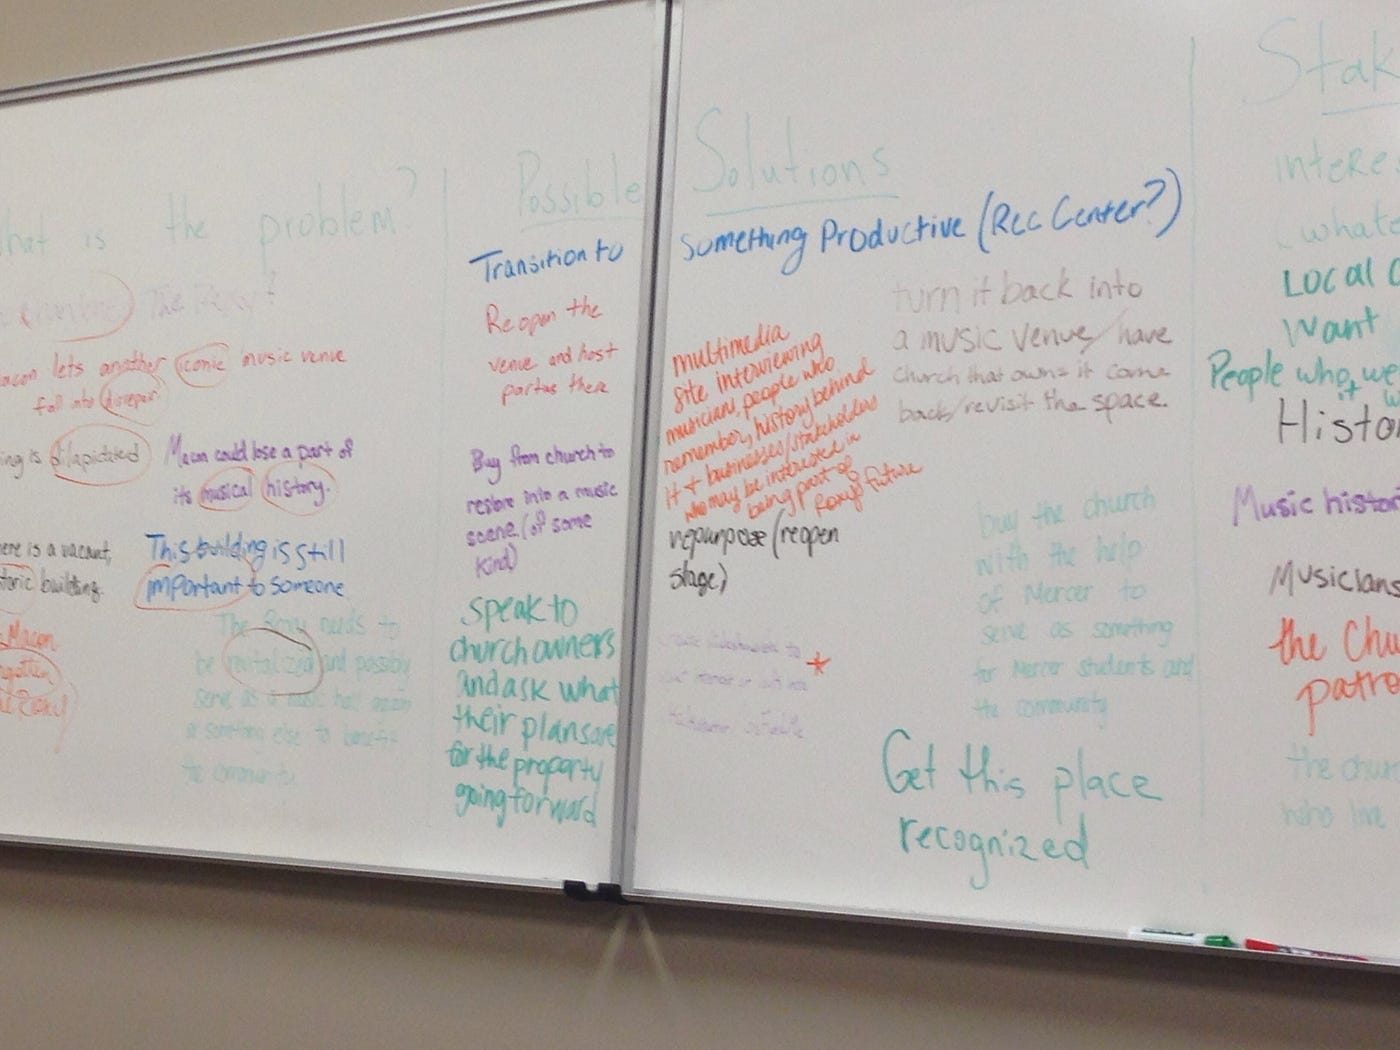 What is the problem?
The Roxy?
Macon lets another iconic music venue
fall into disrepair
is dilapidated
Macon could lose a part of
its musical history.
There is a vacant,
historic building.
This building is still
important to someone
Macon
The Roxy needs to
be revitalized and possibly
serve as a music hall again
or something else to benefit
the community
Possible Solutions
Transition to something Productive (Rec Center?)
Reopen the
venue and host
parties there
Buy from church to
restore into a music
scene. (of some
kind)
speak to
church owners
and ask what
their plans are
for the property
going forward
multimedia
site interviewing
musicians, people who
remember, history behind
it + businesses/stakeholders
who may be interested in
being part of
Roxy's future
repurpose (reopen
stage)
turn it back into
a music venue/have
church that owns it come
back/revisit the space.
buy the church
with the help
of Mercer to
serve as something
for Mercer students and
the community
Get this place
recognized
Stak
intere
(whate
Local
want
People who
it
Histo
Music histor
Musicians
the Chu
patro
the chur
who live